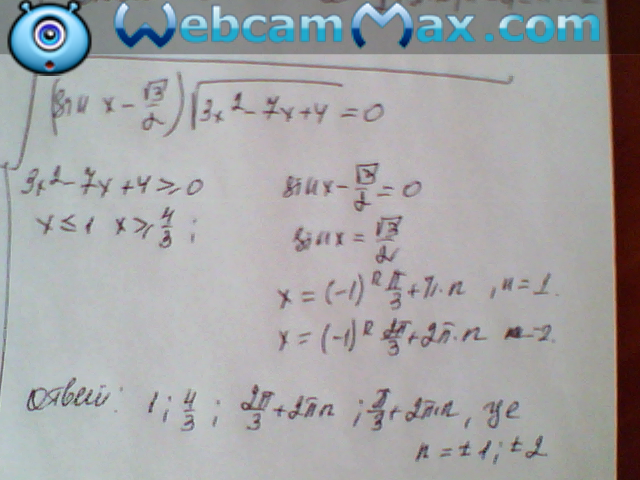 WebcamMax.com
(sin x - √3/2)√(3x² - 7x + 4) = 0
3x² - 7x + 4 ≥ 0 sin x - √3/2 = 0
x ≤ 1 x ≥ 4/3 ; sin x = √3/2
x = (-1)ⁿ π/3 + π·n , n = 1.
x = (-1)ⁿ 2π/3 + 2π·n n = 2.
Ответ: 1 ; 4/3 ; 2π/3 + 2πn ; π/3 + 2πn, где
n = ±1 ; ±2